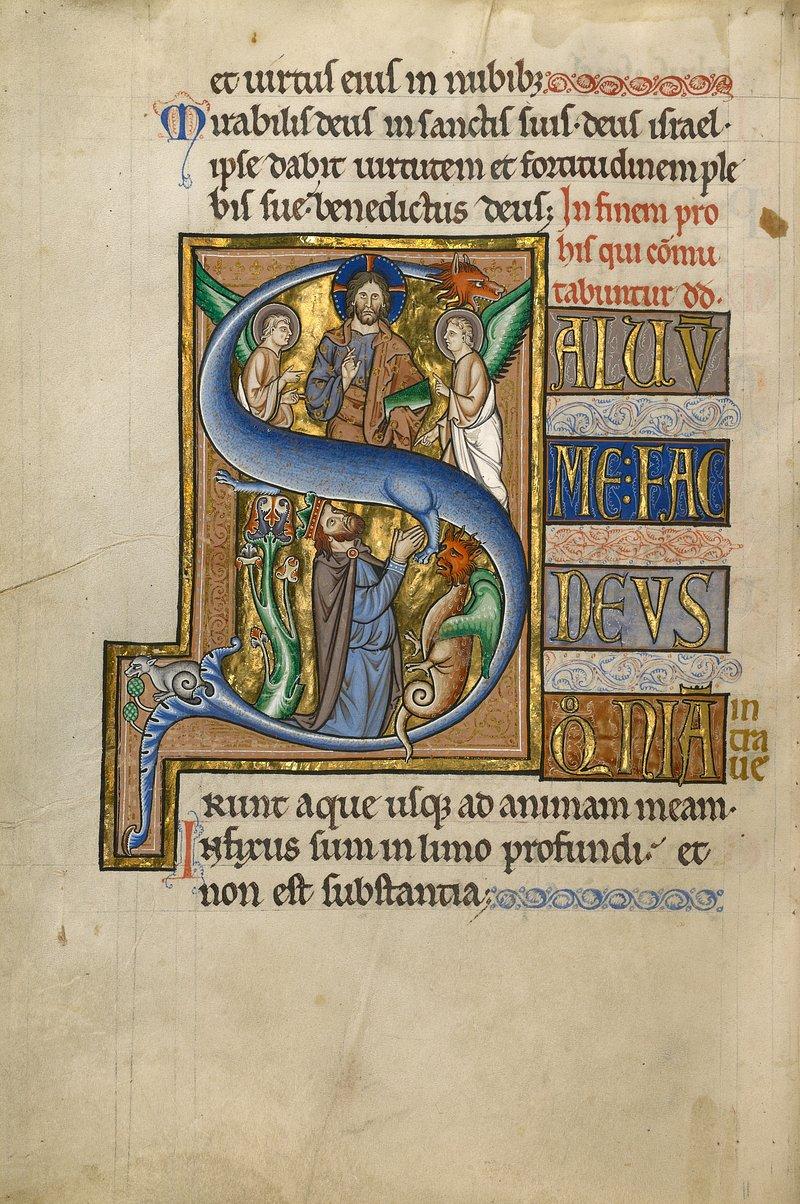 et uirtus eius in nubibꝫ
Mirabilis deus in sanctis suis · deus israel ·
ipse dabit uirtutem et fortitudinem ple
bis sue · benedictus deus; In finem pro
his qui cōmu
tabuntur dd.
SALUV̄
ME : FAC
DEVS
QͦNIĀ in
tra
ue
runt aque usqꝫ ad animam meam ·
Infixus sum in limo profundi · et
non est substantia;